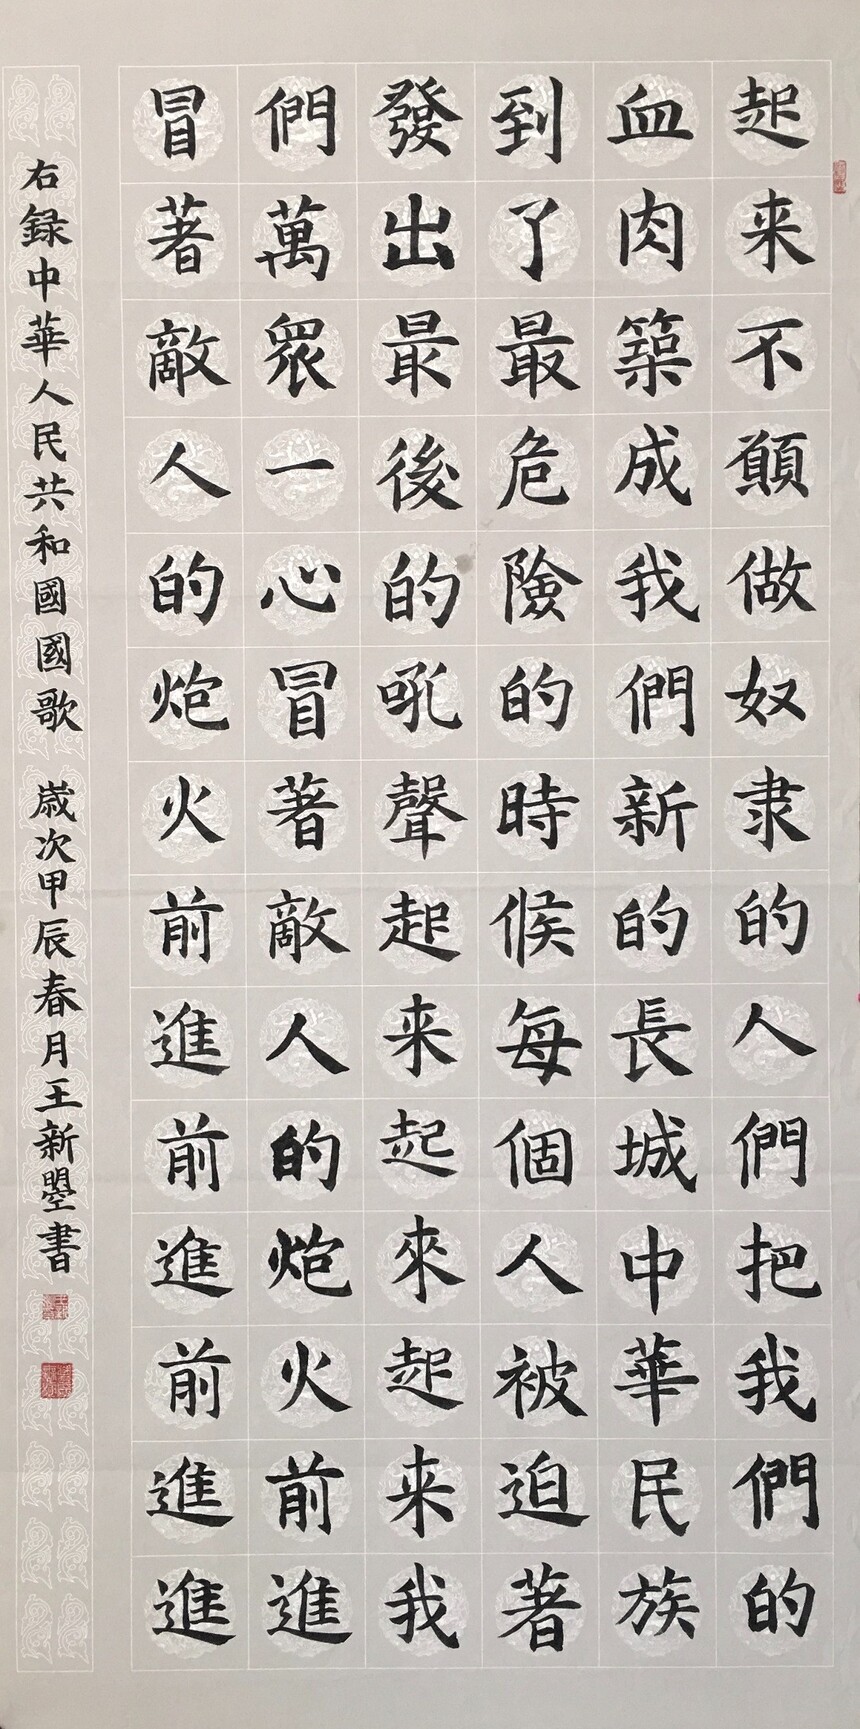 起来不願做奴隶的人們把我們的
血肉築成我們新的長城中華民族
到了最危險的時候每個人被迫著
發出最後的吼聲起来起來起来我
們萬衆一心冒著敵人的炮火前進
冒著敵人的炮火前進前進前進進
右録中華人民共和國國歌 歲次甲辰春月王新曌書